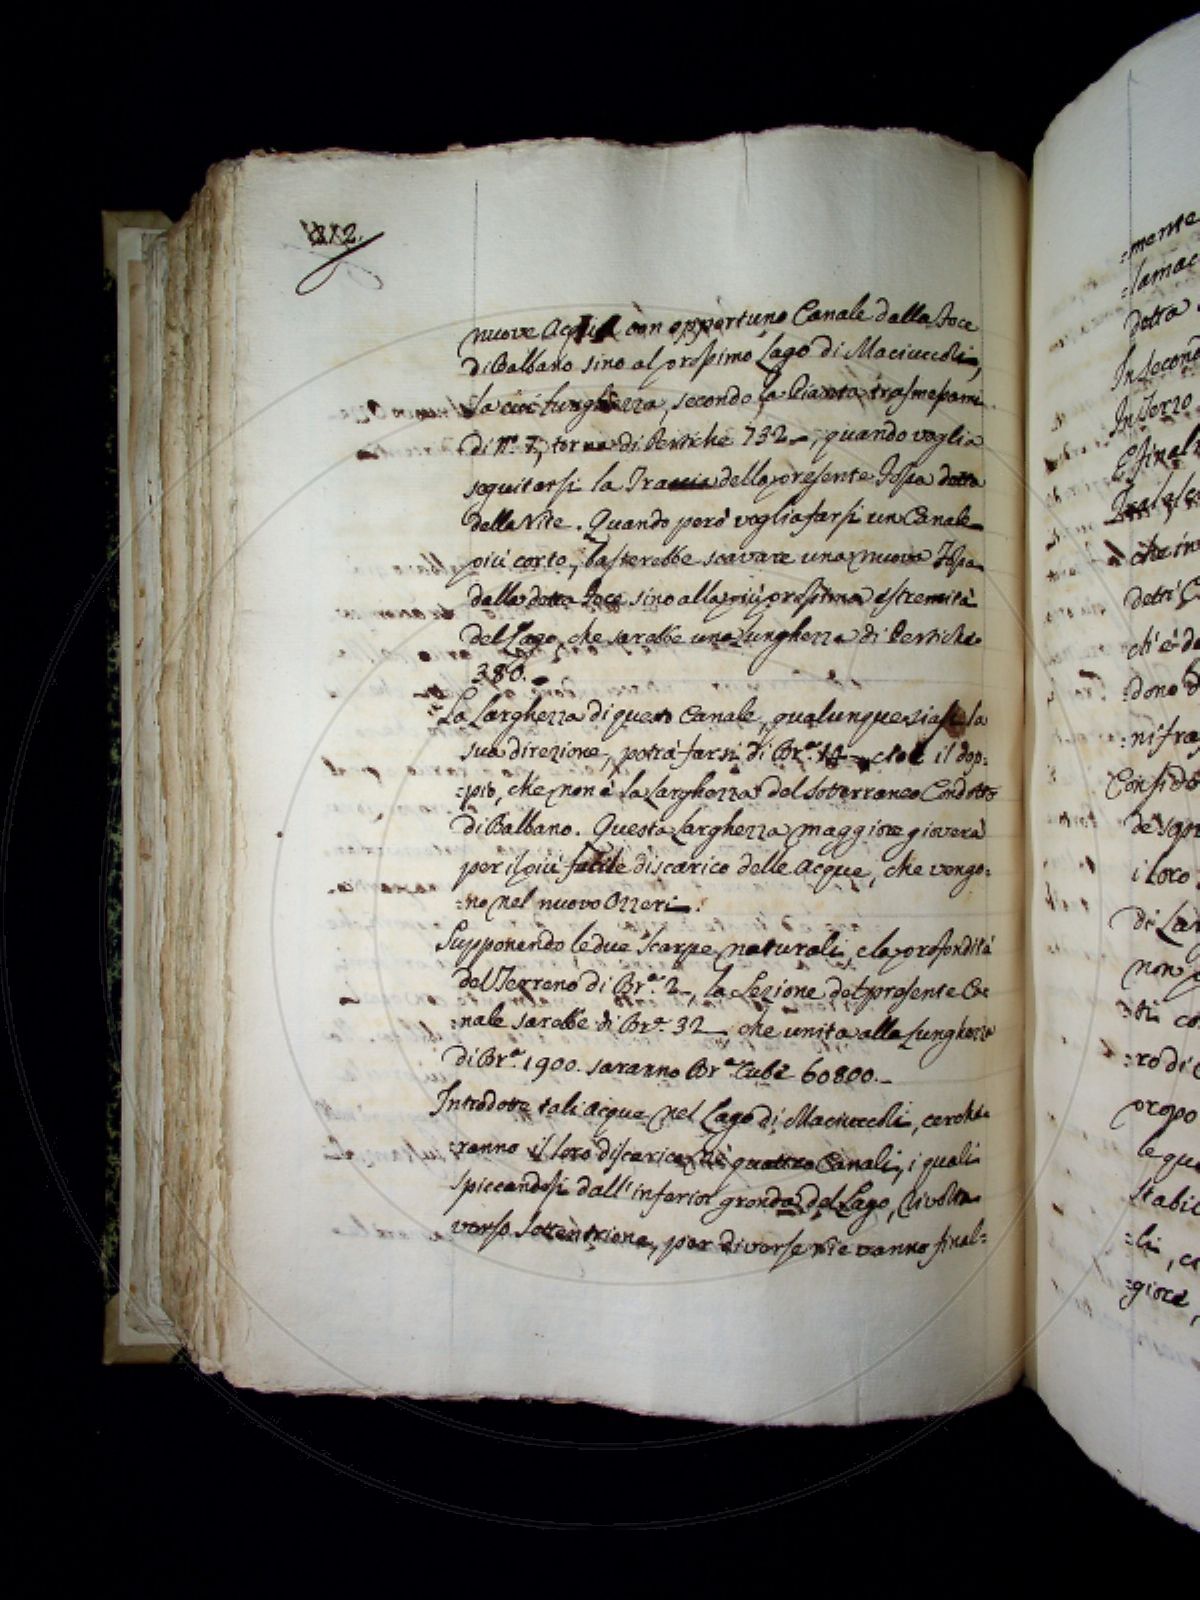 nuove Acque con opportuno Canale dalla Foce
di Balbano sino al prossimo Lago di Maciuccoli,
la cui Lunghezza, secondo la Pianta trasmessami
di N.º 7, torna di Pertiche 732 -, quando voglia
seguitarsi la Traccia della presente Fossa detta
della Vite. Quando però voglia farsi un Canale
più corto, basterebbe scavare una nuova Fossa
dalla detta Foce sino alla più prossima estremità
del Lago, che sarebbe una Lunghezza di Pertiche
380.
La Larghezza di questo Canale, qualunque siasi la
sua direzione, potrà farsi di Br.ª 14 - cioè il dop:
:pio, che non è la Larghezza del sotterraneo Condotto
di Balbano. Questa Larghezza maggiore gioverà
per il più facile discarico delle Acque, che vengo:
:no nel nuovo Ozzeri.
Supponendo le due scarpe naturali, e la profondità
del Terreno di Br.ª 2 -, la Sezione del presente Ca:
:nale sarebbe di Br.ª 32 -, che unita alla Lunghezza
di Br.ª 1900. saranno Br.ª Cube 60800. -
Introdotte tali Acque nel Lago di Maciuccoli, cerche:
:ranno il loro discarico ne' quattro Canali, i quali
spiccandosi dall'inferior gronda del Lago, rivolta
verso Settentrione, per diverse vie vanno final:
:mente
:lamac
detta
In second
In Terzo
E final
che in
detti C
ch'è de
:dono
:ni fra
Consid
i loro
di Lar
non p
:ti co
:ro di
propo
le que
stabi
:li, c
:giore,